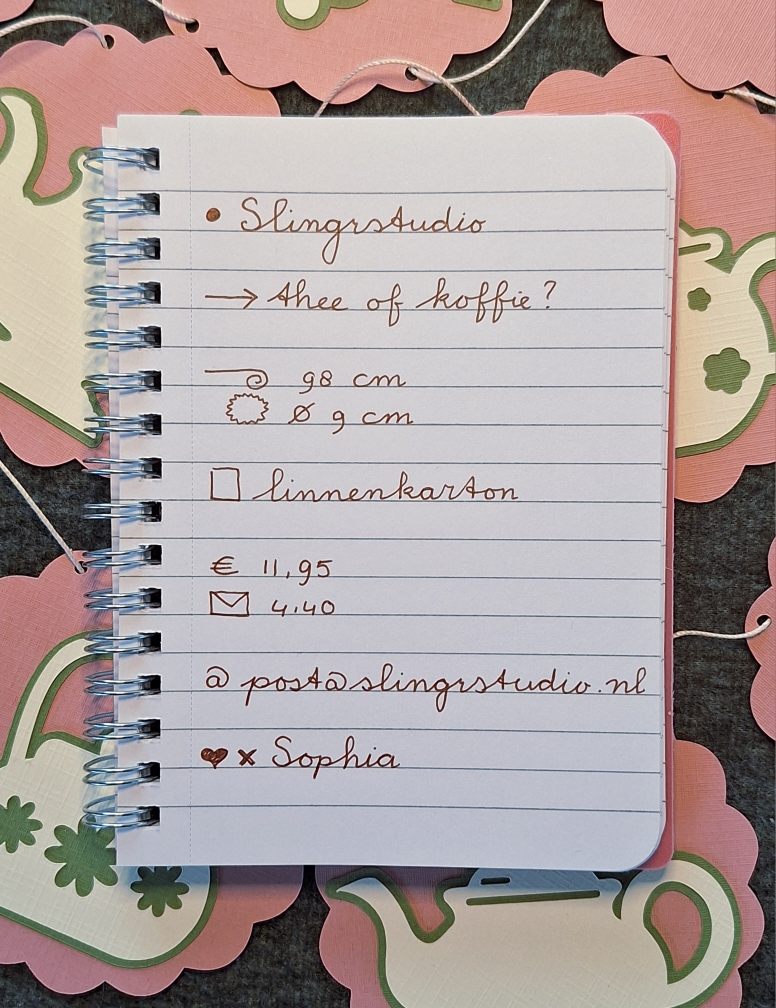 • Slingrstudio
→ thee of koffie?
98 cm
ø 9 cm
linnenkarton
€ 11,95
4.40
@ post@slingrstudio.nl
♥ x Sophia